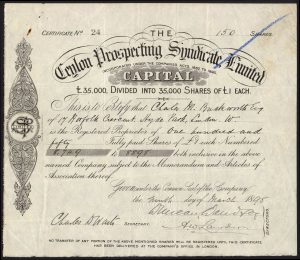 CERTIFICATE No. 24 THE 150 SHARES
Ceylon Prospecting Syndicate Limited
INCORPORATED UNDER THE COMPANIES ACTS 1862 TO 1890
CAPITAL
£35,000, DIVIDED INTO 35,000 SHARES OF £1 EACH.
This is to Certify that Charles M. Rushworth Esq
of 17 Norfolk Crescent Hyde Park London W.
is the Registered Proprietor of One hundred and
fifty Fully paid Shares of £1 each Numbered
to both inclusive in the above
named Company subject to the Memorandum and Articles of
Association thereof
Given under the Common Seal of the Company
the Ninth day of March 1895
DIRECTORS
Charles D. Secretary
NO TRANSFER OF ANY PORTION OF THE ABOVE MENTIONED SHARES WILL BE REGISTERED UNTIL THIS CERTIFICATE
HAS BEEN DELIVERED AT THE COMPANY'S OFFICE IN LONDON.